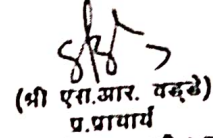 (श्री एस.आर. वड्डे)
प्र.प्राचार्य